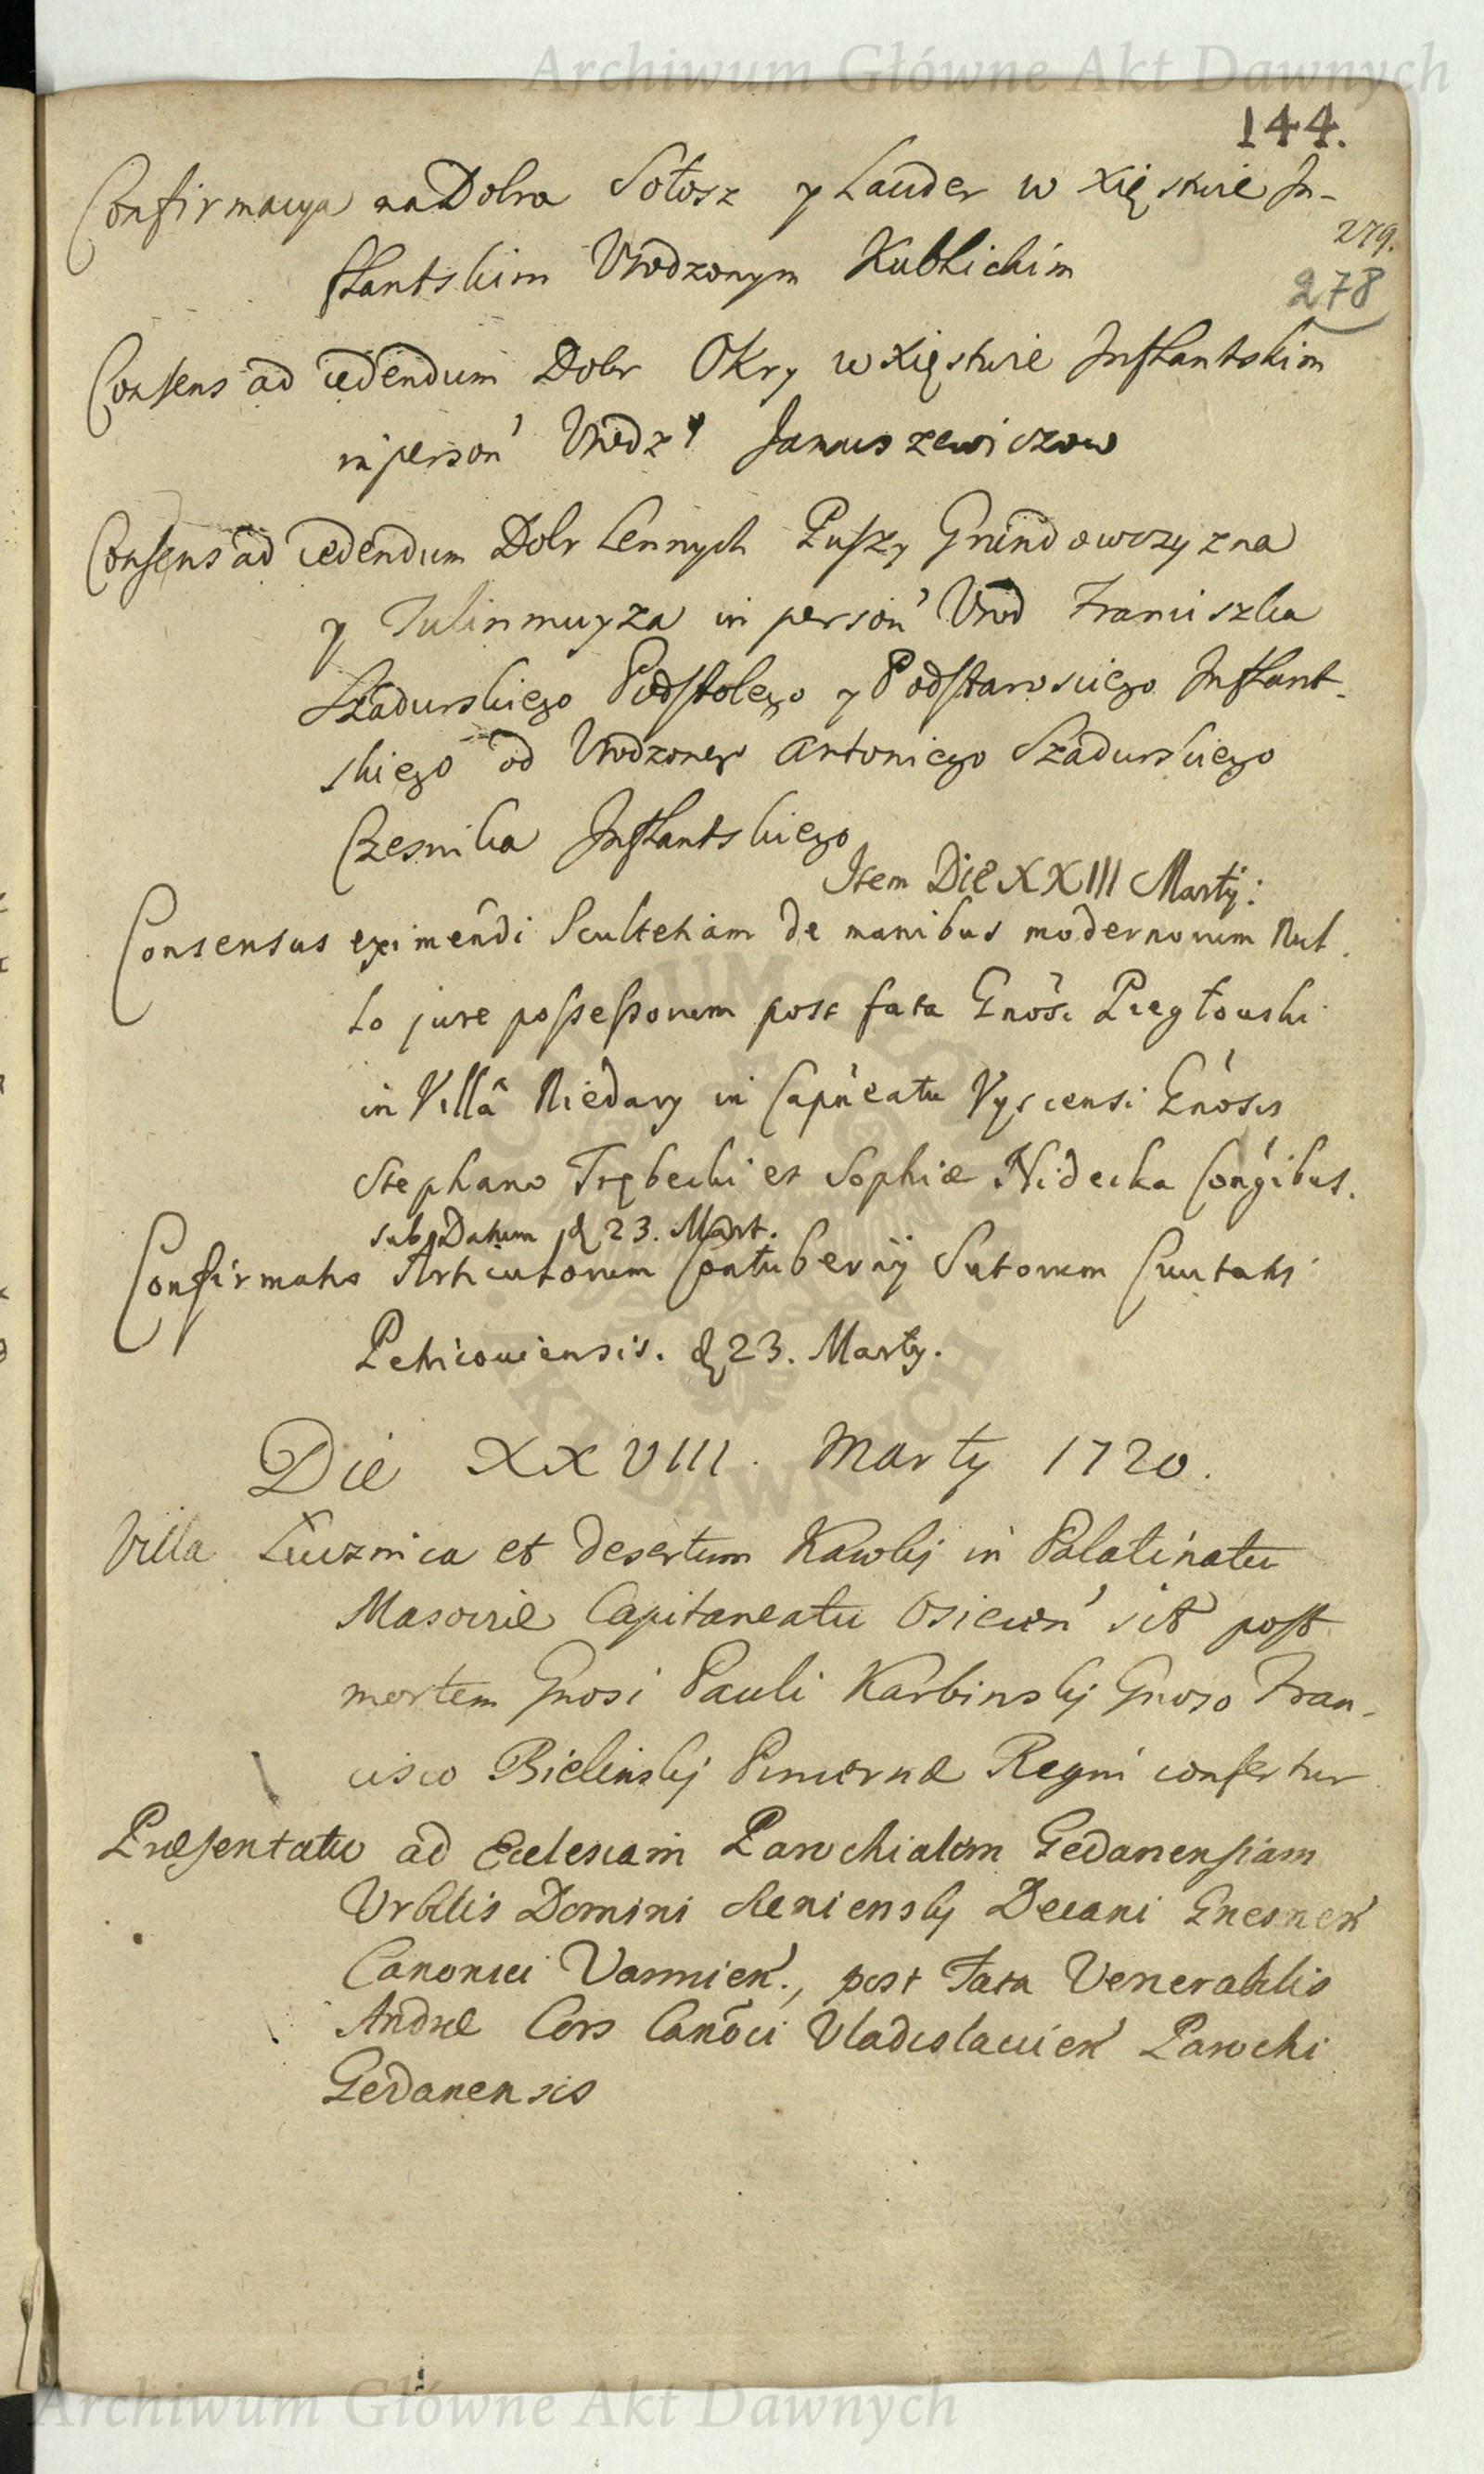 Archiwum Główne Akt Dawnych
144.
Confirmacya na Dobra Sołosz y Lauder w Xięstwie In-
279.
flantskim Urodzonym Kublickim
278
Consens ad cedendum Dobr Okry w Xięstwie Inflantskim
in person' Urodz Januszewiczow
Consens ad cedendum Dobr Lennych Puszy Grundowczyzna
y Julinmuyza in person' Urod Franciszka
Szadurskiego Podstolego y Podstarosciego Inflant-
skiego od Urodzonego Antoniego Szadurskiego
Czesnika Inflantskiego
Item Die XXIII Martij:
Consensus eximendi Scultetiam de manibus modernorum Nul.
lo jure possessorum post fata Gnosi Piegłowski
in Villâ Niedary in Capneatu Vyscensi Gnosis
Stephano Trębecki et Sophiæ Nidecka Congibus.
sub Datum d 23. Mart.
Confirmatio Articulorum Contubernij Sutorum Civitatis
Petricoviensis. d 23. Martij.
Die XXVIII. Martij 1720.
Villa Łucznica et desertum Kawkij in Palatinatu
Masoviæ Capitaneatu Osiecen' sit post
mortem Gnosi Pauli Karbinskij Gnoso Fran-
cisco Bielinskij Pincernæ Regni confertur
Præsentatio ad Ecclesiam Parochialem Gedanensiam
Vrblis Domini Decani Gnesnen'
Canonici Varmien'., post Fata Venerablis
Andreæ Cors Canoci Vladislavien' Parochi
Gedanensis
Archiwum Główne Akt Dawnych